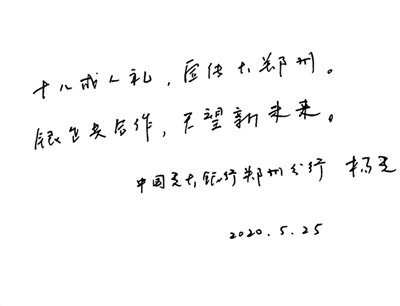 十八成人礼，大郑州。
银企共合作，望新未来。
中国光大银行郑州分行 杨
2020.5.25